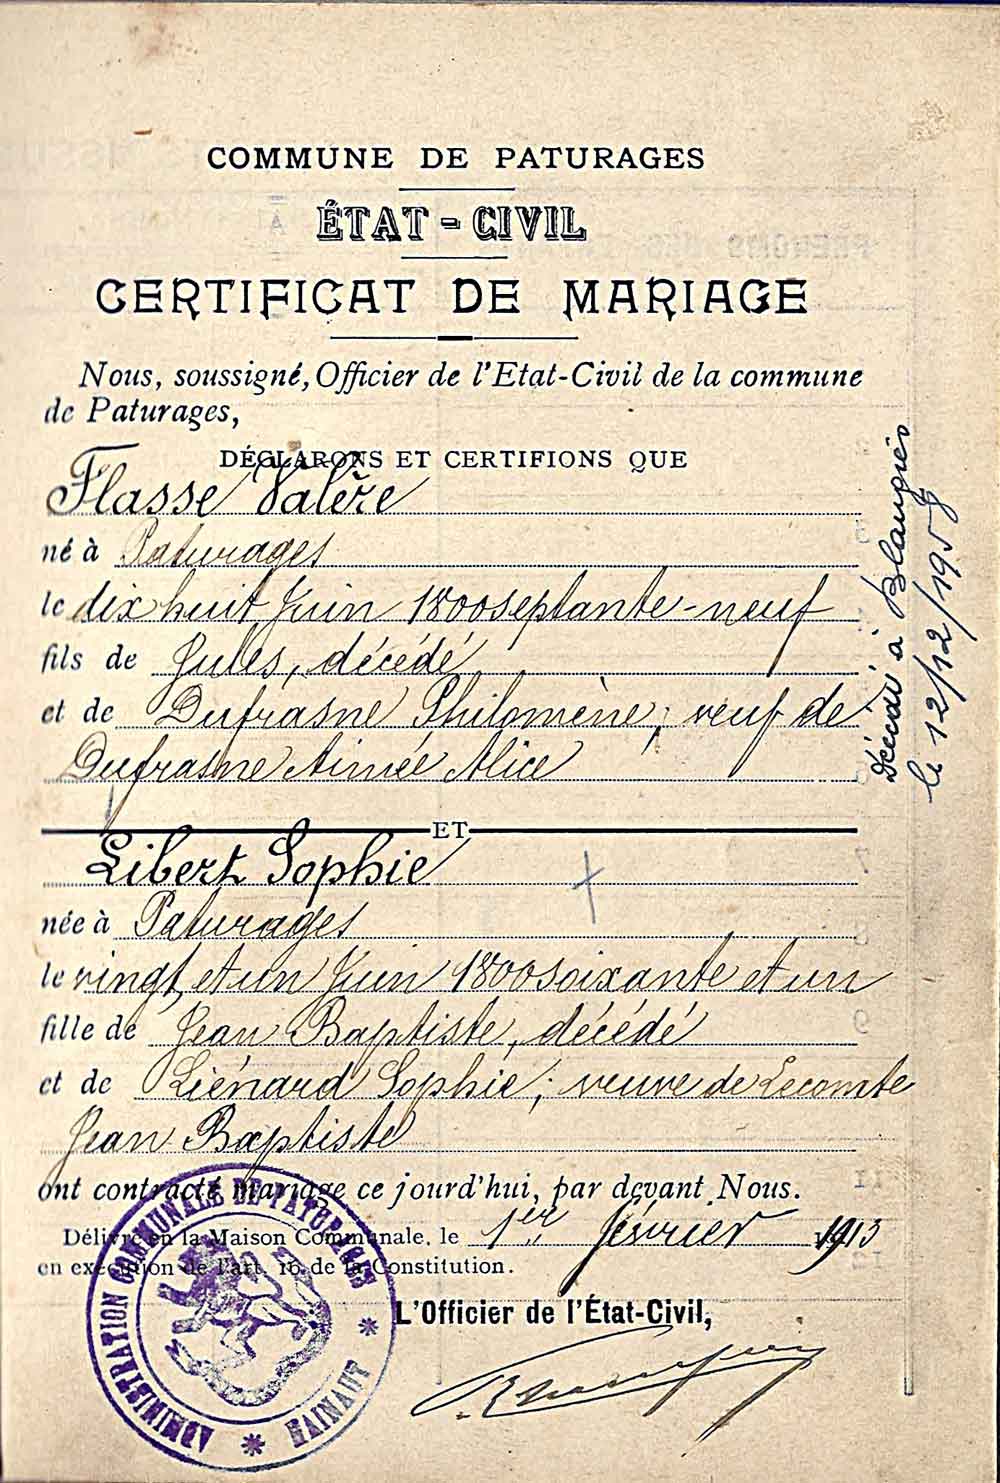 COMMUNE DE PATURAGES
ÉTAT-CIVIL
CERTIFICAT DE MARIAGE
Nous, soussigné, Officier de l'Etat-Civil de la commune
de Paturages,
DÉCLARONS ET CERTIFIONS QUE
Flasse Valère
né à Paturages
le dix huit Juin 1800 septante-neuf
fils de Jules, décédé
et de Dufrasne Philomène, veuf de
Dufrasne Aimée Alice
ET
Libert Sophie
née à Paturages
le vingt et un Juin 1800 soixante et un
fille de Jean Baptiste, décédé
et de Liénard Sophie; veuve de Lecomte
Jean Baptiste
ont contracté mariage ce jourd'hui, par devant Nous.
Délivré en la Maison Communale, le 1er février 1913
en exécution de l'art. 16 de la Constitution.
L'Officier de l'État-Civil,
ADMINISTRATION COMMUNALE DE PATURAGES
* HAINAUT *
Décédé à Blaugies
le 12/12/1958